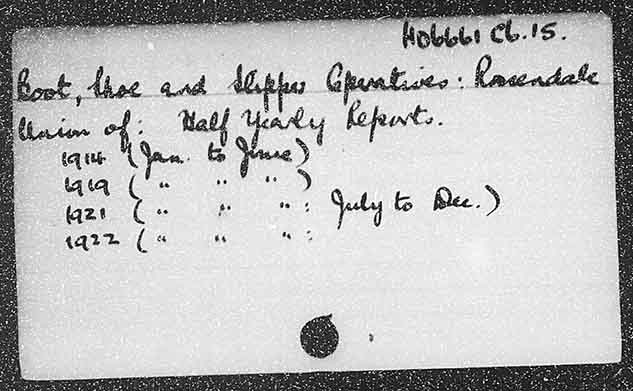 HD6661 C6.15.
Boot, Shoe and Slipper Operatives: Rossendale
Union of: Half Yearly Reports.
1914 (Jan. to June)
1919 ( " " " )
1921 ( " " " : July to Dec.)
1922 ( " " " :